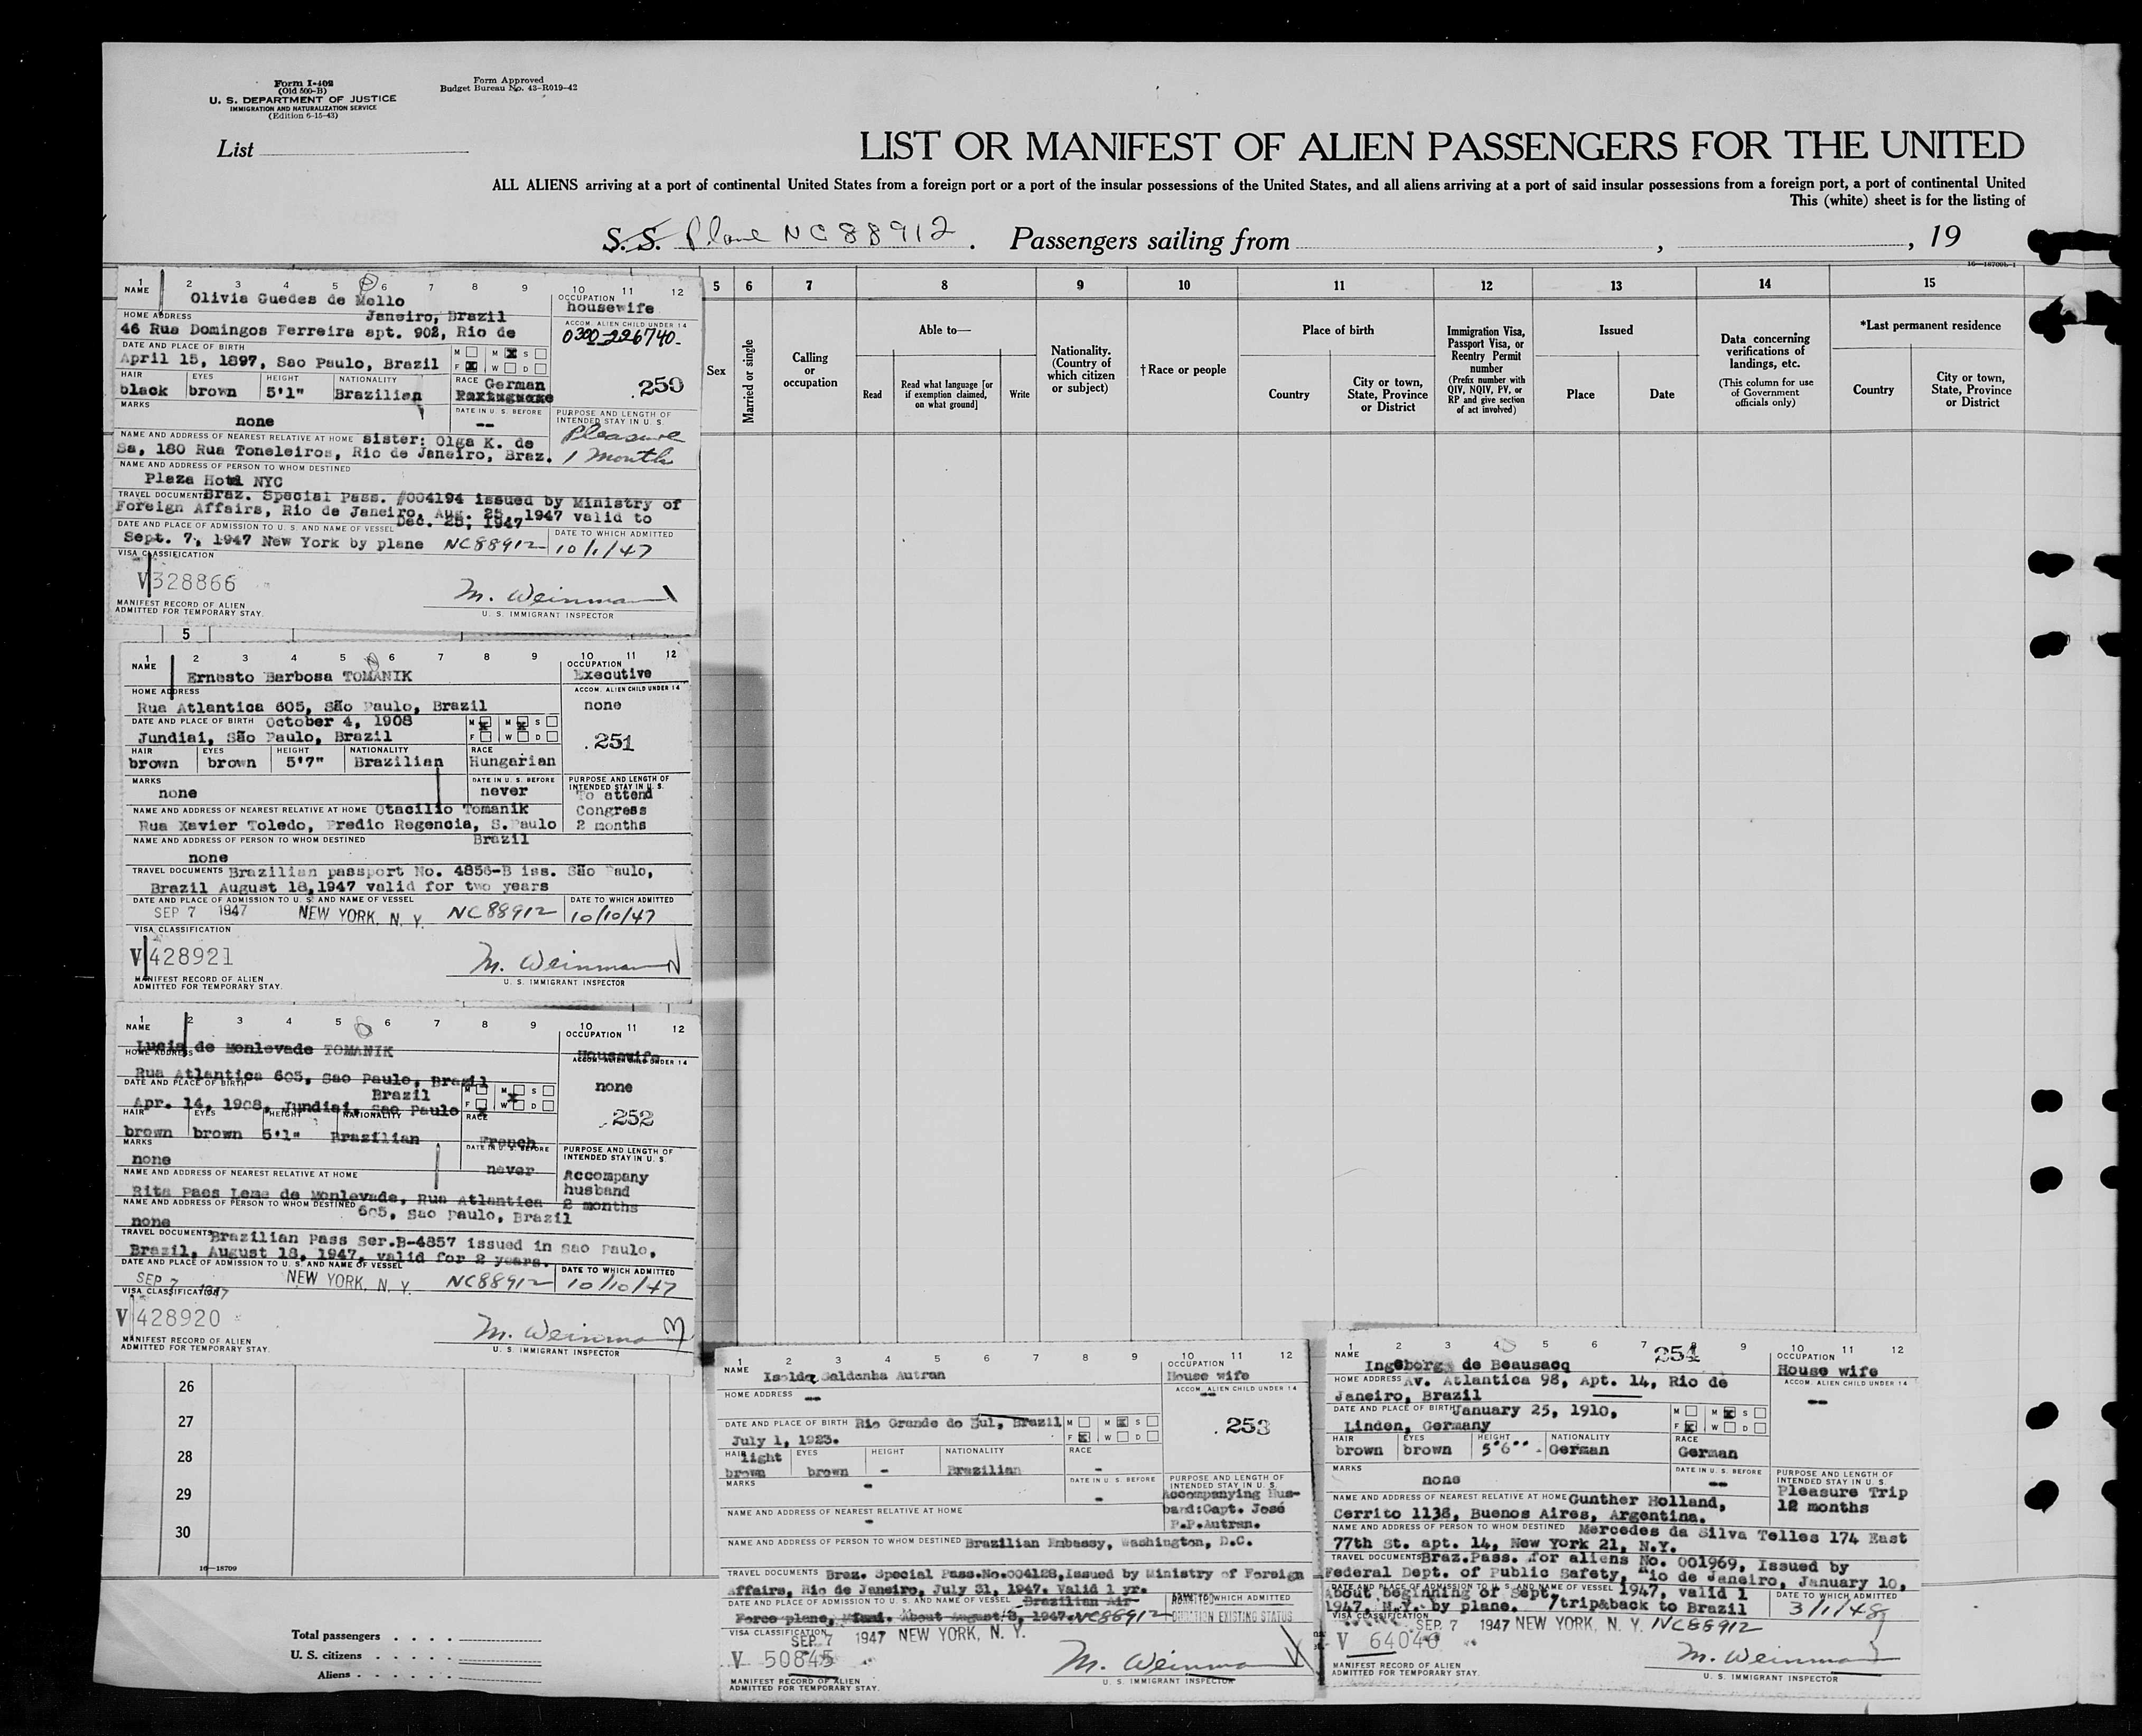 Form I-402
(Old 500-B)
U. S. DEPARTMENT OF JUSTICE
IMMIGRATION AND NATURALIZATION SERVICE
(Edition 6-15-43)
Form Approved
Budget Bureau No. 43-R019-42
List
LIST OR MANIFEST OF ALIEN PASSENGERS FOR THE UNITED
ALL ALIENS arriving at a port of continental United States from a foreign port or a port of the insular possessions of the United States, and all aliens arriving at a port of said insular possessions from a foreign port, a port of continental United
This (white) sheet is for the listing of
S. S. Plane NC88912. Passengers sailing from , , 19
5 6 7 8 9 10 11 12 13 14 15
Sex
Married or single
Calling or occupation
Able to—
Read
Read what language [or if exemption claimed, on what ground]
Write
Nationality. (Country of which citizen or subject)
†Race or people
Place of birth
Country
City or town, State, Province or District
Immigration Visa, Passport Visa, or Reentry Permit number
(Prefix number with QIV, NQIV, PV, or RP and give section of act involved)
Issued
Place
Date
Data concerning verifications of landings, etc.
(This column for use of Government officials only)
*Last permanent residence
Country
City or town, State, Province or District
1 2 3 4 5 6 7 8 9 10 11 12
NAME Olivia Guedes de Mello
OCCUPATION housewife
HOME ADDRESS Janeiro, Brazil
46 Rua Domingos Ferreira apt. 902, Rio de
ACCOM. ALIEN CHILD UNDER 14
0300-226740-
DATE AND PLACE OF BIRTH
April 15, 1897, Sao Paulo, Brazil
M M S
F W D
HAIR EYES HEIGHT NATIONALITY RACE German
black brown 5'1" Brazilian
250
MARKS none
DATE IN U. S. BEFORE --
PURPOSE AND LENGTH OF INTENDED STAY IN U. S.
Pleasure
1 Month
NAME AND ADDRESS OF NEAREST RELATIVE AT HOME sister: Olga K. de
Sa, 180 Rua Toneleiros, Rio de Janeiro, Braz.
NAME AND ADDRESS OF PERSON TO WHOM DESTINED
Plaza Hotel NYC
TRAVEL DOCUMENTS Braz. Special Pass. #004194 issued by Ministry of
Foreign Affairs, Rio de Janeiro, Aug. 25, 1947 valid to
Dec. 25, 1947
DATE AND PLACE OF ADMISSION TO U. S. AND NAME OF VESSEL
Sept. 7, 1947 New York by plane NC88912
DATE TO WHICH ADMITTED
10/1/47
VISA CLASSIFICATION
V 328866
M. Weinman
MANIFEST RECORD OF ALIEN
ADMITTED FOR TEMPORARY STAY.
U. S. IMMIGRANT INSPECTOR
5
1 2 3 4 5 6 7 8 9 10 11 12
NAME Ernesto Barbosa TOMANIK
OCCUPATION Executive
HOME ADDRESS
Rua Atlantica 605, São Paulo, Brazil
ACCOM. ALIEN CHILD UNDER 14
none
DATE AND PLACE OF BIRTH October 4, 1908
Jundiai, São Paulo, Brazil
M M S
F W D
251
HAIR EYES HEIGHT NATIONALITY RACE
brown brown 5'7" Brazilian Hungarian
MARKS none
DATE IN U. S. BEFORE never
PURPOSE AND LENGTH OF INTENDED STAY IN U. S.
To attend
Congress
2 months
NAME AND ADDRESS OF NEAREST RELATIVE AT HOME Otacilio Tomanik
Rua Xavier Toledo, Predio Regencia, S.Paulo
Brazil
NAME AND ADDRESS OF PERSON TO WHOM DESTINED
none
TRAVEL DOCUMENTS Brazilian passport No. 4856-B iss. São Paulo,
Brazil August 18,1947 valid for two years
DATE AND PLACE OF ADMISSION TO U. S. AND NAME OF VESSEL
SEP 7 1947 NEW YORK, N. Y. NC88912
DATE TO WHICH ADMITTED
10/10/47
VISA CLASSIFICATION
V 428921
M. Weinman
MANIFEST RECORD OF ALIEN
ADMITTED FOR TEMPORARY STAY.
U. S. IMMIGRANT INSPECTOR
1 2 3 4 5 6 7 8 9 10 11 12
NAME
Lucia de Monlevade TOMANIK
OCCUPATION
Housewife
HOME ADDRESS
Rua Atlantica 605, Sao Paulo, Brazil
ACCOM. ALIEN CHILD UNDER 14
none
DATE AND PLACE OF BIRTH
Brazil
Apr. 14, 1908, Jundiai, Sao Paulo
M M S
F W D
252
HAIR EYES HEIGHT NATIONALITY RACE
brown brown 5'1" Brazilian French
MARKS
none
DATE IN U. S. BEFORE
never
PURPOSE AND LENGTH OF INTENDED STAY IN U. S.
Accompany
husband
2 months
NAME AND ADDRESS OF NEAREST RELATIVE AT HOME
Rita Paes Leme de Monlevade, Rua Atlantica
605, Sao Paulo, Brazil
NAME AND ADDRESS OF PERSON TO WHOM DESTINED
none
TRAVEL DOCUMENTS Brazilian Pass Ser.B-4857 issued in Sao Paulo,
Brazil, August 18, 1947, valid for 2 years.
DATE AND PLACE OF ADMISSION TO U. S. AND NAME OF VESSEL
SEP 7 1947 NEW YORK, N. Y. NC88912
DATE TO WHICH ADMITTED
10/10/47
VISA CLASSIFICATION
V 428920
M. Weinman
MANIFEST RECORD OF ALIEN
ADMITTED FOR TEMPORARY STAY.
U. S. IMMIGRANT INSPECTOR
26
27
28
29
30
16—18709
Total passengers
U. S. citizens
Aliens
1 2 3 4 5 6 7 8 9 10 11 12
NAME Isolda Saldanha Autran
OCCUPATION
House wife
HOME ADDRESS --
ACCOM. ALIEN CHILD UNDER 14
--
DATE AND PLACE OF BIRTH Rio Grande do Sul, Brazil
July 1, 1923.
M M S
F W D
253
HAIR light brown
EYES brown
HEIGHT -
NATIONALITY Brazilian
RACE -
MARKS -
DATE IN U. S. BEFORE -
PURPOSE AND LENGTH OF INTENDED STAY IN U. S.
Accompanying Hus-
band:Capt. José
P.P.Autran.
NAME AND ADDRESS OF NEAREST RELATIVE AT HOME
-
NAME AND ADDRESS OF PERSON TO WHOM DESTINED Brazilian Embassy, Washington, D.C.
TRAVEL DOCUMENTS Braz. Special Pass.No.004128,Issued by Ministry of Foreign
Affairs, Rio de Janeiro, July 31, 1947. Valid 1 yr.
DATE AND PLACE OF ADMISSION TO U. S. AND NAME OF VESSEL Brazilian Air
Force plane, Miami. About August/8, 1947. NC88912
WHICH ADMITTED
DURATION EXISTING STATUS
VISA CLASSIFICATION
SEP 7 1947 NEW YORK, N. Y.
V 50845
M. Weinman
MANIFEST RECORD OF ALIEN
ADMITTED FOR TEMPORARY STAY.
U. S. IMMIGRANT INSPECTOR
1 2 3 4 5 6 7 8 9 10 11 12
254
NAME Ingeborg de Beausacq
OCCUPATION
House wife
HOME ADDRESS Av. Atlantica 98, Apt. 14, Rio de
Janeiro, Brazil
ACCOM. ALIEN CHILD UNDER 14
--
DATE AND PLACE OF BIRTH January 25, 1910,
Linden, Germany
M M S
F W D
HAIR EYES HEIGHT NATIONALITY RACE
brown brown 5'6" German German
MARKS none
DATE IN U. S. BEFORE --
PURPOSE AND LENGTH OF INTENDED STAY IN U. S.
Pleasure Trip
12 months
NAME AND ADDRESS OF NEAREST RELATIVE AT HOME Gunther Holland,
Cerrito 1138, Buenos Aires, Argentina.
NAME AND ADDRESS OF PERSON TO WHOM DESTINED Mercedes da Silva Telles 174 East
77th St. apt. 14, New York 21, N.Y.
TRAVEL DOCUMENTS Braz.Pass. for aliens No. 001969, Issued by
Federal Dept. of Public Safety, Rio de Janeiro, January 10,
1947, valid 1
trip&back to Brazil
DATE AND PLACE OF ADMISSION TO U. S. AND NAME OF VESSEL
About beginning of Sept.
1947, N.Y. by plane.
DATE TO WHICH ADMITTED
3/1/48
VISA CLASSIFICATION
SEP. 7 1947 NEW YORK, N. Y. NC88912
V 64040
M. Weinman
MANIFEST RECORD OF ALIEN
ADMITTED FOR TEMPORARY STAY.
U. S. IMMIGRANT INSPECTOR